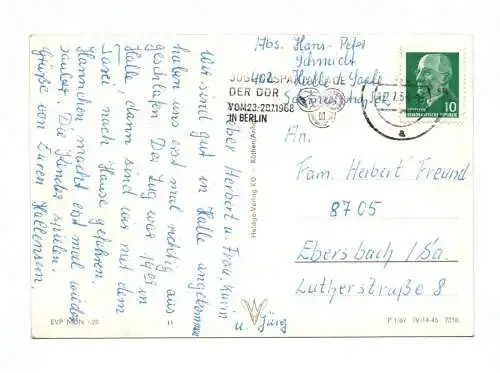 Abs. Hans-Peter
Schmidt
402 Halle/Saale
DER DDR
VOM 23-28.7.1968
IN BERLIN
10
DEUTSCHE
DEMOKRATISCHE REPUBLIK
a
An.
Fam. Herbert Freund
8705
Ebersbach/Sa.
Lutherstraße 8
Lieber Herbert u. Frau, Karin
u. Jürg
Wir sind gut in Halle angekommen
haben uns erst mal richtig aus
geschlafen. Der Zug war 19⁰¹ in
Halle, dann sind wir mit dem
Taxi nach Hause gefahren.
Hannchen macht erst mal wieder
sauber. Die Kinder spielen.
Grüße von Euren Hallensern.
EVP MDN -,20
11
P 1/67 IV-14-45 7218